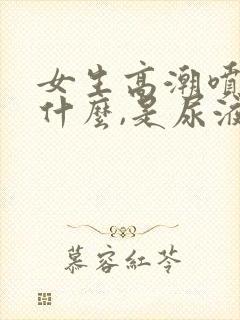 女生高潮噴
什麼,是尿液
慕容紅苓